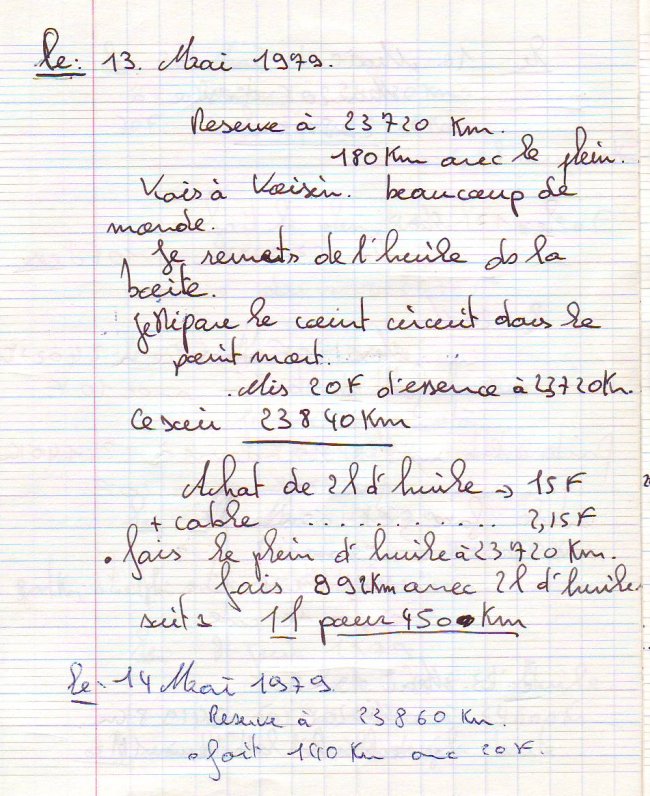 Le: 13. Mai 1979.
Reserve à 23720 Km.
180 Km avec le plein.
Vais à Voisin. beaucoup de
monde.
Je remets de l'huile ds la
boite.
Je Répare le court circuit dans le
point mort.
. Mis 20F d'essence à 23720 Km.
Ce soir 23840 Km
Achat de 2l d'huile → 15F
+ cable ............ 2,15F
. fais le plein d'huile à 23720 Km.
fais 892 Km avec 2l d'huile
soit 1l pour 450 Km
Le: 14 Mai 1979.
Reserve à 23860 Km.
. fait 140 Km avec 20F.